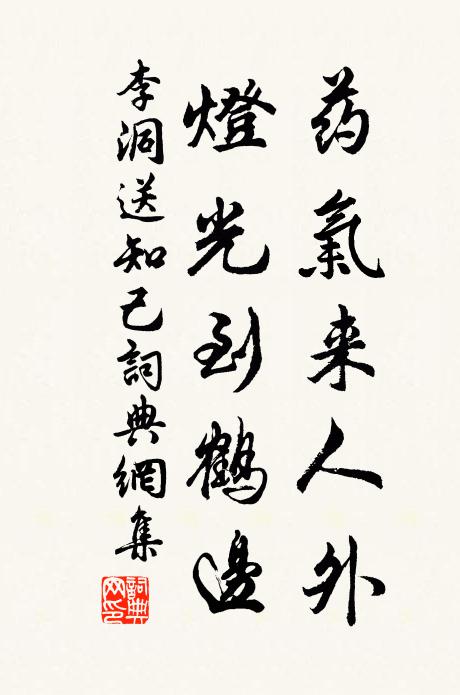 药氣来人外
燈光到鶴邊
李洞送知己詞典網集
詞典网印